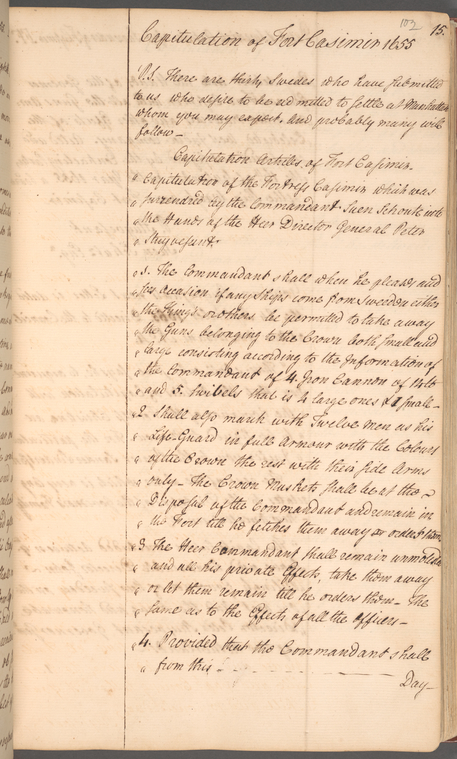 102
15.
Capitulation of Fort Casimir 1655
P.S. There are thirty Swedes who have submitted
to us who desire to be admitted to settle at Manhattans
whom you may expect. And probably many will
follow —
Capitulation Articles of Fort Casimir.
Capitulation of the Fortress Casimir which was
surrendred by the Commandant Suen Schoute into
the Hands of the Heer Director General Peter
Stuyvesant.
1. The Commandant shall when he pleases and
has occasion if any Ships come from Sweeden either
the Kings or others be permitted to take away
the Guns belonging to the Crown both small and
large consisting according to the Information of
the Commandant of 4. Iron Cannon of
and 5. Swibels that is 4 large ones & 1 small —
2. Shall also march with Twelve men as his
Life Guard in full Armour with the Colours
of the Crown the rest with their side Arms
only — The Crown Muskets shall be at the —
Disposal of the Commandant and remain in
the Fort till he fetches them away or orders them
3. The Heer Commandant shall remain unmolested
and all his private Effects, take them away
or let them remain till he orders them — The
same as to the Effects of all the Officers —
4. Provided that the Commandant shall
from this
Day —